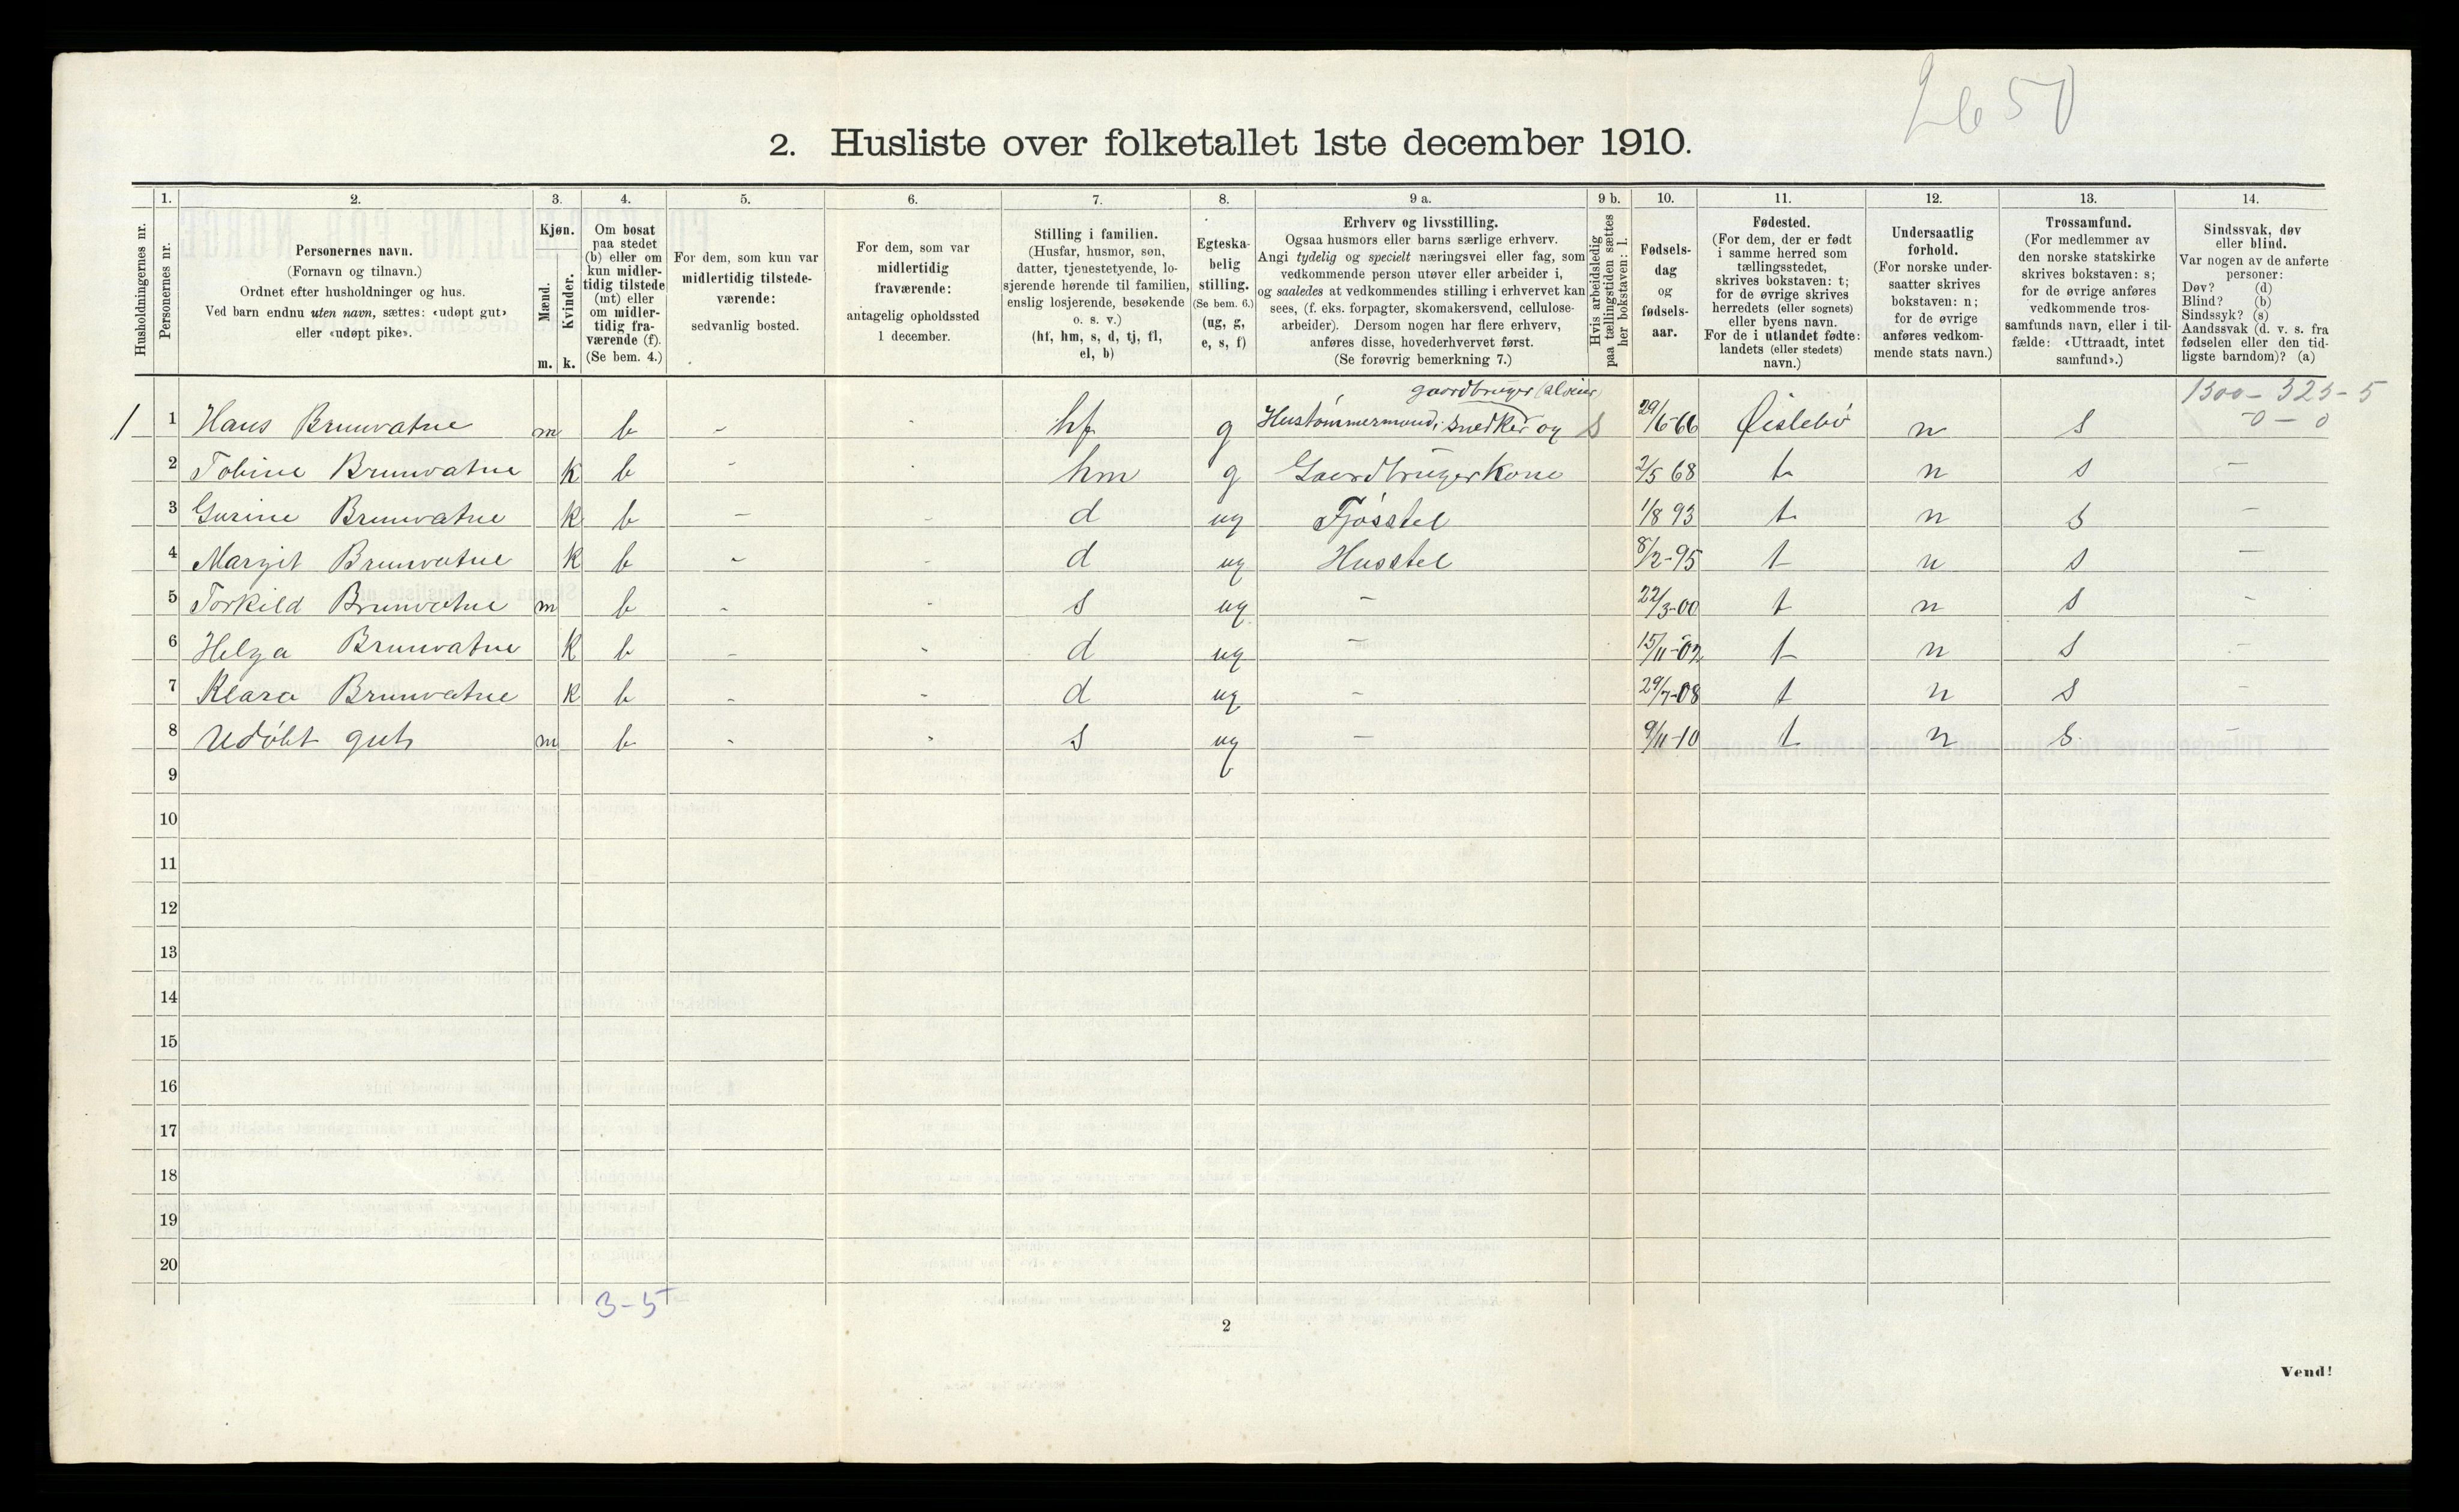 2650
2. Husliste over folketallet 1ste december 1910.
Husholdningernes nr.
1.
Personernes nr.
2.
Personernes navn.
(Fornavn og tilnavn.)
Ordnet efter husholdninger og hus.
Ved barn endnu uten navn, sættes: «udøpt gut»
eller «udøpt pike».
3.
Kjøn.
Mænd.
m.
Kvinder.
k.
4.
Om bosat
paa stedet
(b) eller om
kun midler-
tidig tilstede
(mt) eller
om midler-
tidig fra-
værende (f).
(Se bem. 4.)
5.
For dem, som kun var
midlertidig tilstede-
værende:
sedvanlig bosted.
6.
For dem, som var
midlertidig
fraværende:
antagelig opholdssted
1 december.
7.
Stilling i familien.
(Husfar, husmor, søn,
datter, tjenestetyende, lo-
sjerende hørende til familien,
enslig losjerende, besøkende
o. s. v.)
(hf, hm, s, d, tj, fl,
el, b)
8.
Egteska-
belig
stilling.
(Se bem. 6.)
(ug, g,
e, s, f)
9 a.
Erhverv og livsstilling.
Ogsaa husmors eller barns særlige erhverv.
Angi tydelig og specielt næringsvei eller fag, som
vedkommende person utøver eller arbeider i,
og saaledes at vedkommendes stilling i erhvervet kan
sees, (f. eks. forpagter, skomakersvend, cellulose-
arbeider). Dersom nogen har flere erhverv,
anføres disse, hovederhvervet først.
(Se forøvrig bemerkning 7.)
9 b.
Hvis arbeidsledig
paa tællingstiden sættes
her bokstaven: l.
10.
Fødsels-
dag
og
fødsels-
aar.
11.
Fødested.
(For dem, der er født
i samme herred som
tællingsstedet,
skrives bokstaven: t;
for de øvrige skrives
herredets (eller sognets)
eller byens navn.
For de i utlandet fødte:
landets (eller stedets)
navn.)
12.
Undersaatlig
forhold.
(For norske under-
saatter skrives
bokstaven: n;
for de øvrige
anføres vedkom-
mende stats navn.)
13.
Trossamfund.
(For medlemmer av
den norske statskirke
skrives bokstaven: s;
for de øvrige anføres
vedkommende tros-
samfunds navn, eller i til-
fælde: «Uttraadt, intet
samfund».)
14.
Sindssvak, døv
eller blind.
Var nogen av de anførte
personer:
Døv? (d)
Blind? (b)
Sindssyk? (s)
Aandssvak (d. v. s. fra
fødselen eller den tid-
ligste barndom)? (a)
gaardbruger (alsein)
1300 - 323 - 5
0 - 0
1 1 Hans Brunvatne m b - - hf g Hustømmermand, snedker og S 29/6-66 Øislebø n s
2 Tobine Brunvatne k b - - hm g Gaardbrugerkone 2/5 68 t n s -
3 Gurine Brunvatne k b - - d ug Fjøsstel 1/8 93 t n s -
4 Margit Brunvatne k b - - d ug Husstel 8/2-95 t n s -
5 Torkild Brunvatne m b - - s ug - 22/3-00 t n s -
6 Helga Brunvatne k b - - d ug - 15/11-02 t n s -
7 Klara Brunvatne k b - - d ug - 29/7-08 t n s -
8 Udøbt gut m b - - s ug - 9/11-10 t n s -
9
10
11
12
13
14
15
16
17
18
19
20
3-5
2
Vend!